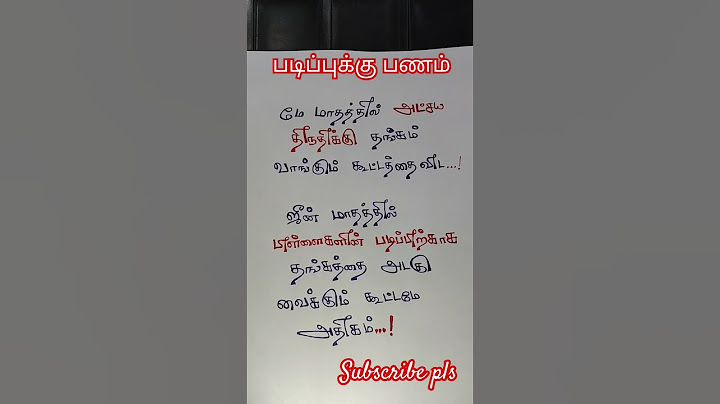 படிப்புக்கு பணம்
மே மாதத்தில் அட்சய
திருதிக்கு தங்கம்
வாங்கும் கூட்டத்தைவிட...!
ஜீன் மாதத்தில்
பிள்ளைகளின் படிப்பிற்காக
தங்கத்தை அடகு
வைக்கும் கூட்டமே
அதிகம்...!
Subscribe pls